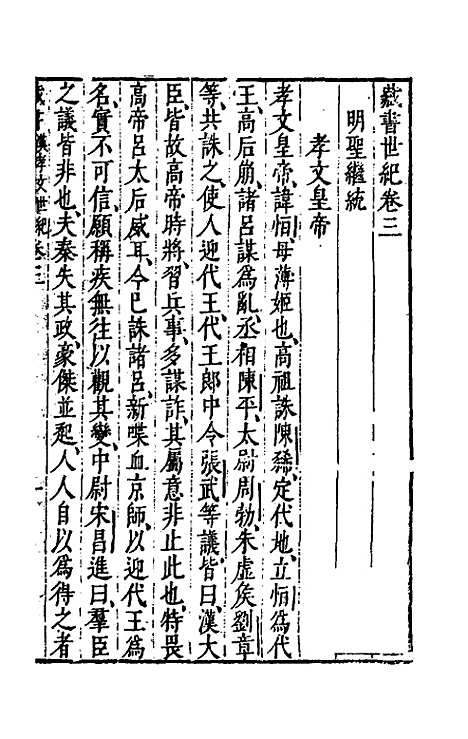 藏書世紀卷三
明聖繼統
孝文皇帝
孝文皇帝、諱恒、母薄姬也、高祖誅陳豨、定代地、立恒為代
王、高后崩、諸呂謀為亂、丞相陳平、太尉周勃、朱虛侯劉章
等、共誅之、使人迎代王、代王郎中令張武等議、皆曰、漢大
臣、皆故高帝時將、習兵事、多謀詐、其屬意非止此也、特畏
高帝呂太后威耳、今已誅諸呂、新喋血京師、以迎代王為
名、實不可信、願稱疾無往、以觀其變、中尉宋昌進曰、羣臣
之議皆非也、夫秦失其政、豪傑並起、人人自以為得之者